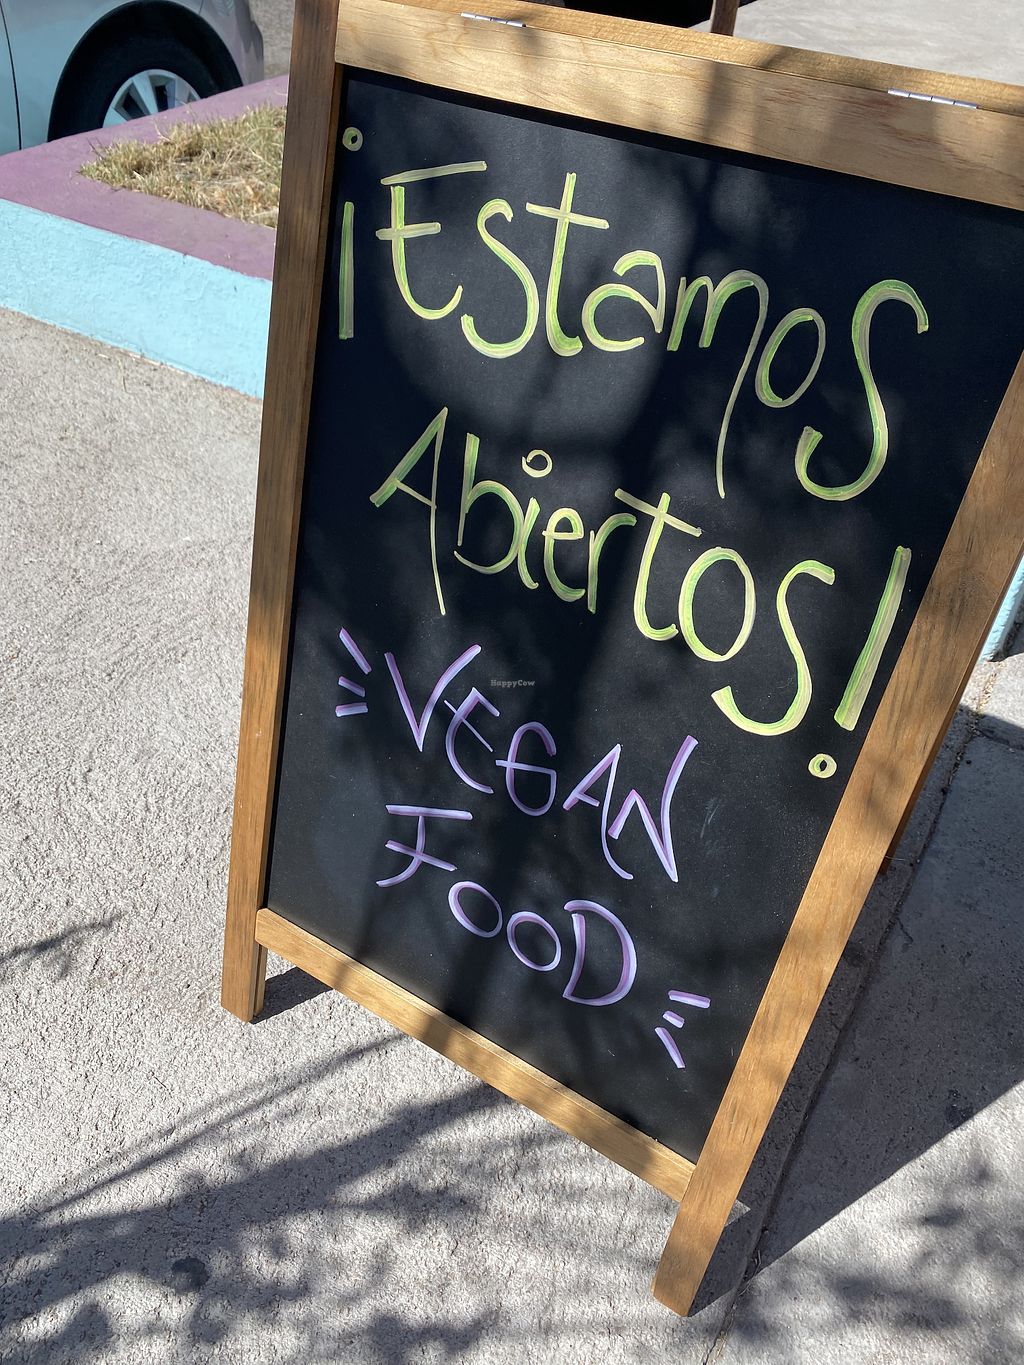 ¡Estamos
Abiertos!
VEGAN
FOOD
HappyCow